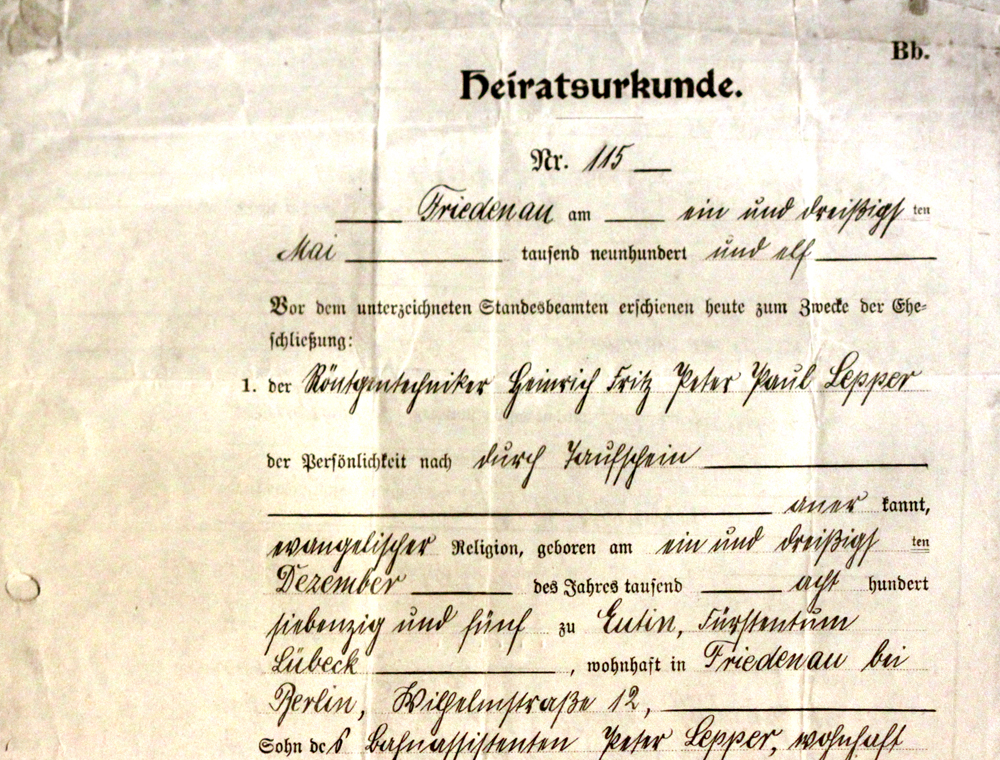 Bb.
Heiratsurkunde.
Nr. 115
Friedenau am ein und dreißigsten
Mai tausend neunhundert und elf
Vor dem unterzeichneten Standesbeamten erschienen heute zum Zwecke der Ehe-
schließung:
1. der Röntgentechniker Heinrich Fritz Peter Paul Lepper
der Persönlichkeit nach durch Taufschein
anerkannt,
evangelischer Religion, geboren am ein und dreißigsten
Dezember des Jahres tausend acht hundert
siebenzig und fünf zu Eutin, Fürstentum
Lübeck, wohnhaft in Friedenau bei
Berlin, Wilhelmstraße 12,
Sohn des Bahnassistenten Peter Lepper, wohnhaft